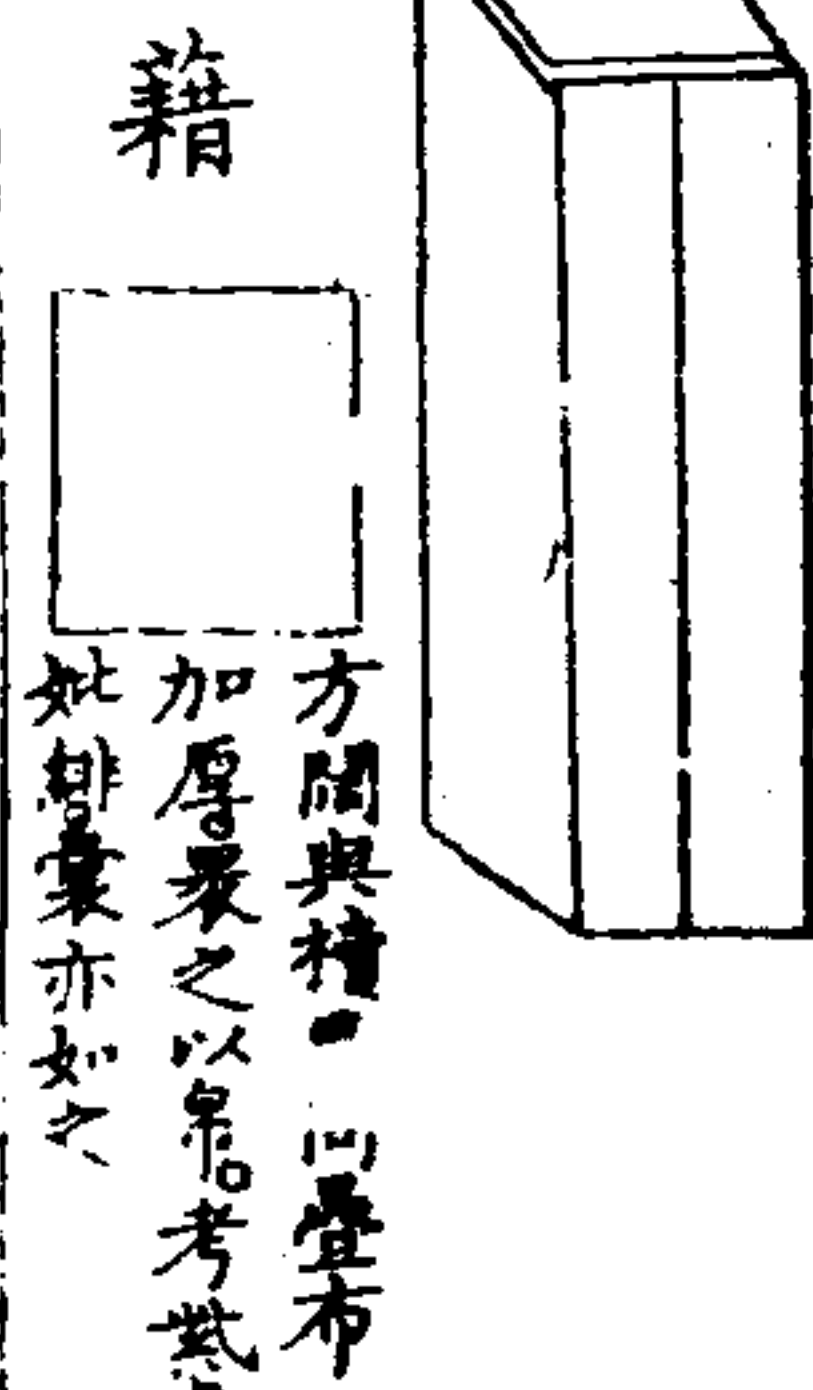 藉
方闊與櫝 疊布
加厚裹之以帛。考紫
妣緋。囊亦如之